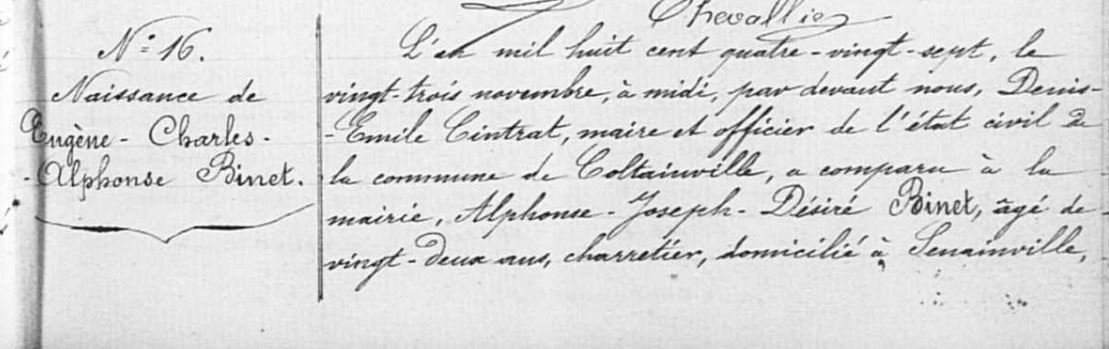 Chevallier
N° 16.
Naissance de
Eugène - Charles -
- Alphonse Binet.
L'an mil huit cent quatre-vingt-sept, le
vingt-trois novembre, à midi, par devant nous, Denis-
- Emile Cintrat, maire et officier de l'état civil de
la commune de Coltainville, a comparu à la
mairie, Alphonse-Joseph-Désiré Binet, âgé de
vingt-deux ans, charretier, domicilié à Senainville,